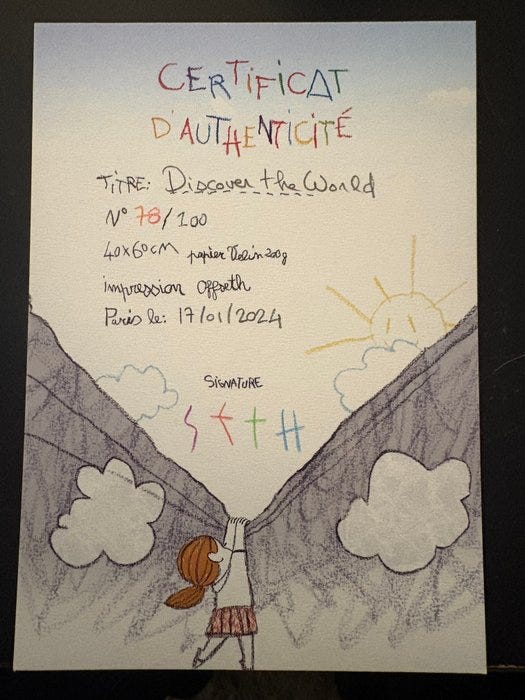 CERTIFICAT
D'AUTHENTICITÉ
TITRE: Discover the World
N° 78/100
40x60cm papier Velin 300g
impression offseth
Paris le: 17/01/2024
SIGNATURE
STTH